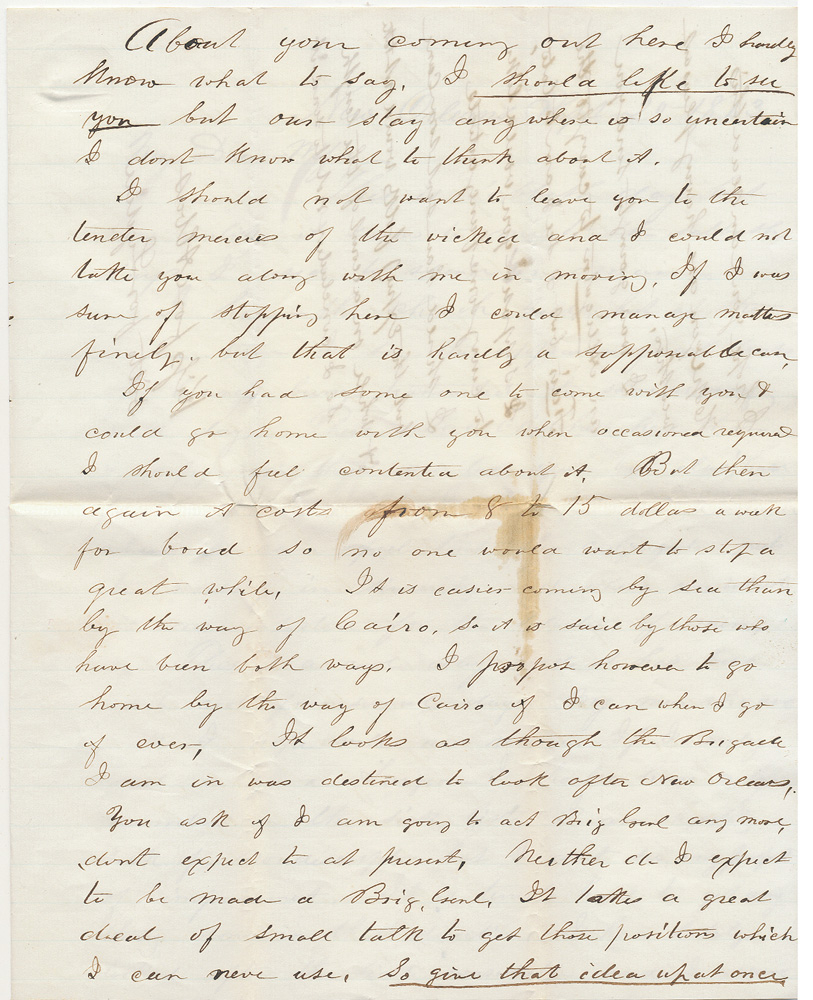 About your coming out here I hardly
know what to say. I should like to see
you but our stay anywhere is so uncertain
I dont know what to think about it.
I should not want to leave you to the
tender mercies of the wicked and I could not
take you along with me in moving. If I was
sure of stopping here I could manage matters
finely. but that is hardly a supposable case,
If you had some one to come with you &
could go home with you when occasioned required
I should feel contented about it. But then
again it costs from 8 to 15 dollas a week
for board so no one would want to stop a
great while. It is easier coming by sea than
by the way of Cairo, so it is said by those who
have been both ways. I propos however to go
home by the way of Cairo if I can when I go
if ever, It looks as though the Brigade
I am in was destined to look after New Orleans,
You ask if I am going to act Brig Genl any more,
dont expect to at present, Neither do I expect
to be made a Brig. Genl. It takes a great
deal of small talk to get those positions which
I can neve use. So give that idea up at once